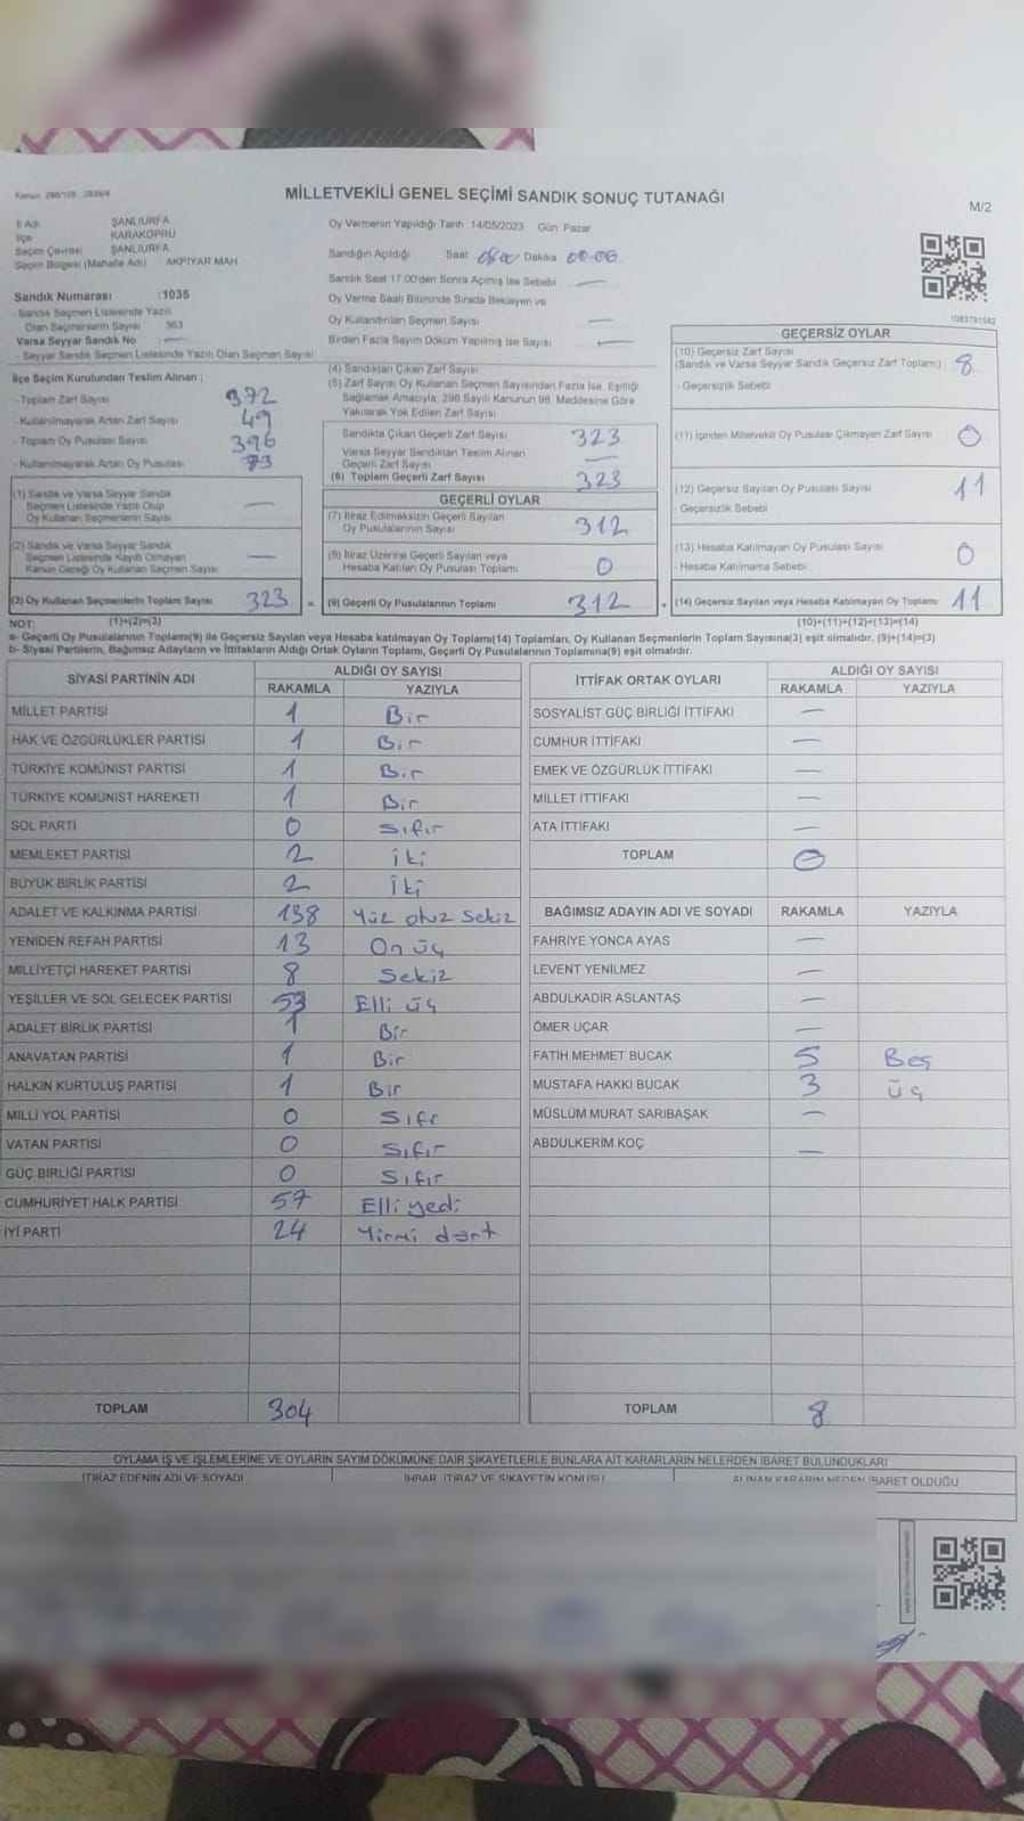 MİLLETVEKİLİ GENEL SEÇİMİ SANDIK SONUÇ TUTANAĞI
M/2
İl Adı ŞANLIURFA
İlçe KARAKÖPRÜ
Seçim Çevresi ŞANLIURFA
Seçim Bölgesi (Mahalle Adı) AKPIYAR MAH
Sandık Numarası :1035
Sandık Seçmen Listesinde Yazılı
Olan Seçmenlerin Sayısı 363
Varsa Seyyar Sandık No —
- Seyyar Sandık Seçmen Listesinde Yazılı Olan Seçmen Sayısı
Oy Vermenin Yapıldığı Tarih 14/05/2023 Gün Pazar
Sandığın Açıldığı Saat Dakika
Sandık Saat 17.00'den Sonra Açılmış İse Sebebi —
Oy Verme Saati Bitiminde Sırada Bekleyen ve
Oy Kullandırılan Seçmen Sayısı —
Birden Fazla Sayım Döküm Yapılmış İse Sayısı —
İlçe Seçim Kurulundan Teslim Alınan ;
- Toplam Zarf Sayısı 372
- Kullanılmayarak Artan Zarf Sayısı 49
- Toplam Oy Pusulası Sayısı 396
- Kullanılmayarak Artan Oy Pusulası 73
(1) Sandık ve Varsa Seyyar Sandık
Seçmen Listesinde Yazılı Olup
Oy Kullanan Seçmenlerin Sayısı —
(2) Sandık ve Varsa Seyyar Sandık
Seçmen Listesinde Kayıtlı Olmayan
Kanun Gereği Oy Kullanan Seçmen Sayısı —
(3) Oy Kullanan Seçmenlerin Toplam Sayısı 323 =
(4) Sandıktan Çıkan Zarf Sayısı
(5) Zarf Sayısı Oy Kullanan Seçmen Sayısından Fazla İse, Eşitliği
Sağlamak Amacıyla, 298 Sayılı Kanunun 98. Maddesine Göre
Yakılarak Yok Edilen Zarf Sayısı
Sandıkta Çıkan Geçerli Zarf Sayısı 323
Varsa Seyyar Sandıktan Teslim Alınan
Geçerli Zarf Sayısı —
(6) Toplam Geçerli Zarf Sayısı 323
GEÇERLİ OYLAR
(7) İtiraz Edilmeksizin Geçerli Sayılan
Oy Pusulalarının Sayısı 312
(8) İtiraz Üzerine Geçerli Sayılan veya
Hesaba Katılan Oy Pusulası Toplamı 0
(9) Geçerli Oy Pusulalarının Toplamı 312 +
GEÇERSİZ OYLAR
(10) Geçersiz Zarf Sayısı
(Sandık ve Varsa Seyyar Sandık Geçersiz Zarf Toplamı) 8
- Geçersizlik Sebebi
(11) İçinden Milletvekili Oy Pusulası Çıkmayan Zarf Sayısı 0
(12) Geçersiz Sayılan Oy Pusulası Sayısı 11
- Geçersizlik Sebebi
(13) Hesaba Katılmayan Oy Pusulası Sayısı 0
- Hesaba Katılmama Sebebi
(14) Geçersiz Sayılan veya Hesaba Katılmayan Oy Toplamı 11
NOT: (1)+(2)=(3) (10)+(11)+(12)+(13)=(14)
a- Geçerli Oy Pusulalarının Toplamı(9) ile Geçersiz Sayılan veya Hesaba katılmayan Oy Toplamı(14) Toplamları, Oy Kullanan Seçmenlerin Toplam Sayısına(3) eşit olmalıdır. (9)+(14)=(3)
b- Siyasi Partilerin, Bağımsız Adayların ve İttifakların Aldığı Ortak Oyların Toplamı, Geçerli Oy Pusulalarının Toplamına(9) eşit olmalıdır.
SİYASİ PARTİNİN ADI ALDIĞI OY SAYISI
RAKAMLA YAZIYLA
MİLLET PARTİSİ 1 Bir
HAK VE ÖZGÜRLÜKLER PARTİSİ 1 Bir
TÜRKİYE KOMÜNİST PARTİSİ 1 Bir
TÜRKİYE KOMÜNİST HAREKETİ 1 Bir
SOL PARTİ 0 Sıfır
MEMLEKET PARTİSİ 2 İki
BÜYÜK BİRLİK PARTİSİ 2 İki
ADALET VE KALKINMA PARTİSİ 138 Yüz otuz Sekiz
YENİDEN REFAH PARTİSİ 13 On üç
MİLLİYETÇİ HAREKET PARTİSİ 8 Sekiz
YEŞİLLER VE SOL GELECEK PARTİSİ 53 Elli üç
ADALET BİRLİK PARTİSİ 1 Bir
ANAVATAN PARTİSİ 1 Bir
HALKIN KURTULUŞ PARTİSİ 1 Bir
MİLLİ YOL PARTİSİ 0 Sıfr
VATAN PARTİSİ 0 Sıfır
GÜÇ BİRLİĞİ PARTİSİ 0 Sıfır
CUMHURİYET HALK PARTİSİ 57 Elli yedi
İYİ PARTİ 24 Yirmi dört
TOPLAM 304
İTTİFAK ORTAK OYLARI ALDIĞI OY SAYISI
RAKAMLA YAZIYLA
SOSYALİST GÜÇ BİRLİĞİ İTTİFAKI —
CUMHUR İTTİFAKI —
EMEK VE ÖZGÜRLÜK İTTİFAKI —
MİLLET İTTİFAKI —
ATA İTTİFAKI —
TOPLAM 0
BAĞIMSIZ ADAYIN ADI VE SOYADI RAKAMLA YAZIYLA
FAHRİYE YONCA AYAS —
LEVENT YENİLMEZ —
ABDULKADİR ASLANTAŞ —
ÖMER UÇAR —
FATİH MEHMET BUCAK 5 Beş
MUSTAFA HAKKI BUCAK 3 üç
MÜSLÜM MURAT SARIBAŞAK —
ABDULKERİM KOÇ —
TOPLAM 8
OYLAMA İŞ VE İŞLEMLERİNE VE OYLARIN SAYIM DÖKÜMÜNE DAİR ŞİKAYETLERLE BUNLARA AİT KARARLARIN NELERDEN İBARET BULUNDUKLARI
İTİRAZ EDENİN ADI VE SOYADI İHBAR, İTİRAZ VE ŞİKAYETİN KONUSU ALINAN KARARIN NEDEN İBARET OLDUĞU